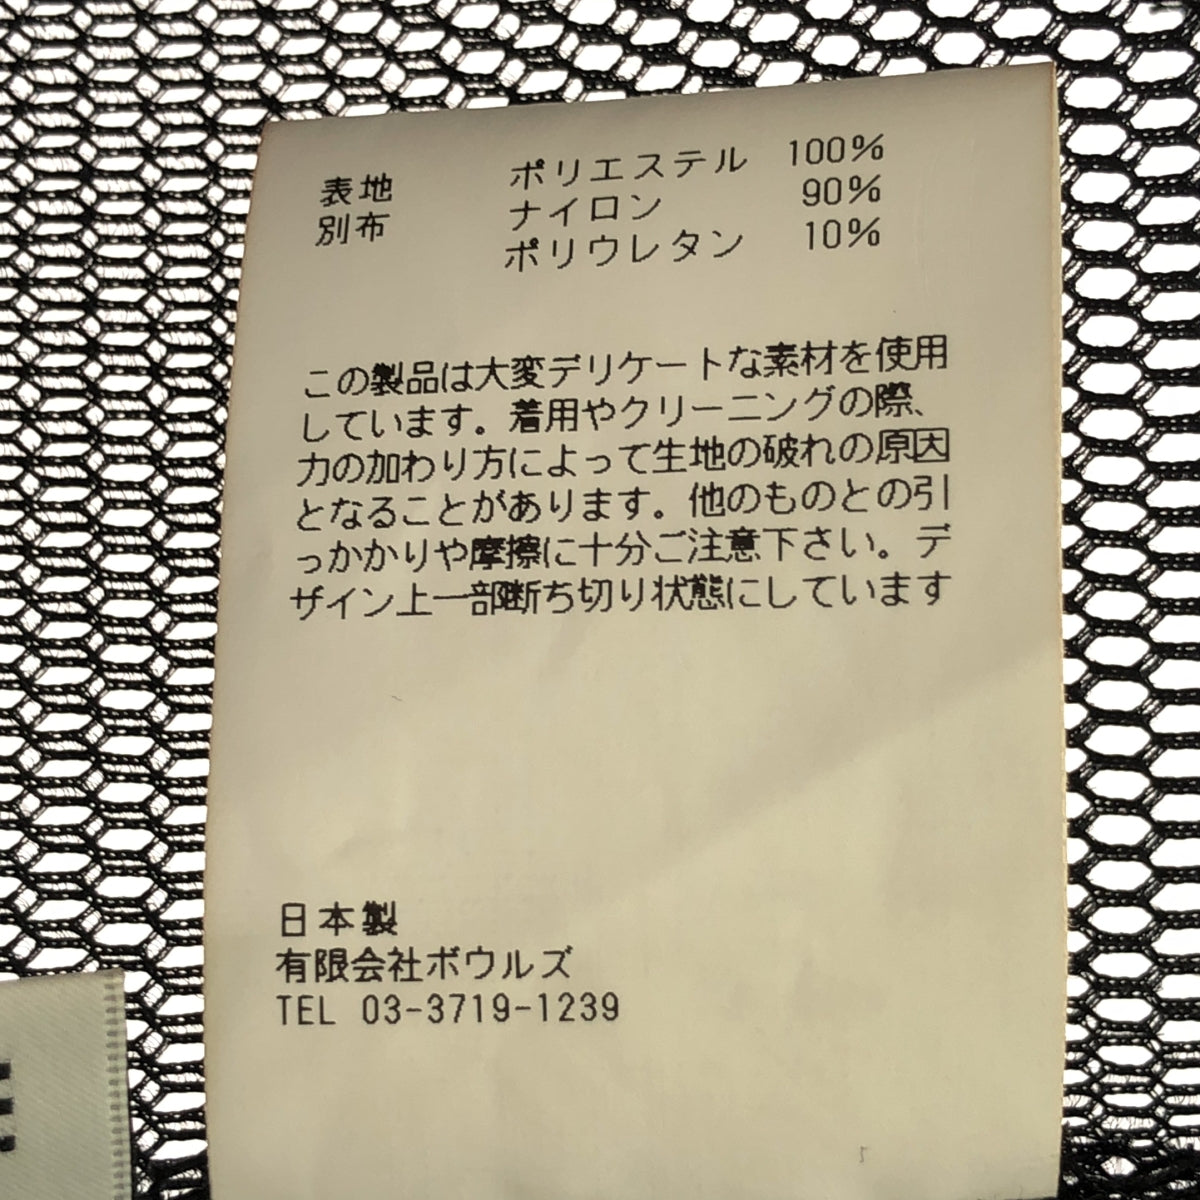 表地 ポリエステル 100%
別布 ナイロン 90%
ポリウレタン 10%
この製品は大変デリケートな素材を使用
しています。着用やクリーニングの際、
力の加わり方によって生地の破れの原因
となることがあります。他のものとの引
っかかりや摩擦に十分ご注意下さい。デ
ザイン上一部断ち切り状態にしています
日本製
有限会社ボウルズ
TEL 03-3719-1239